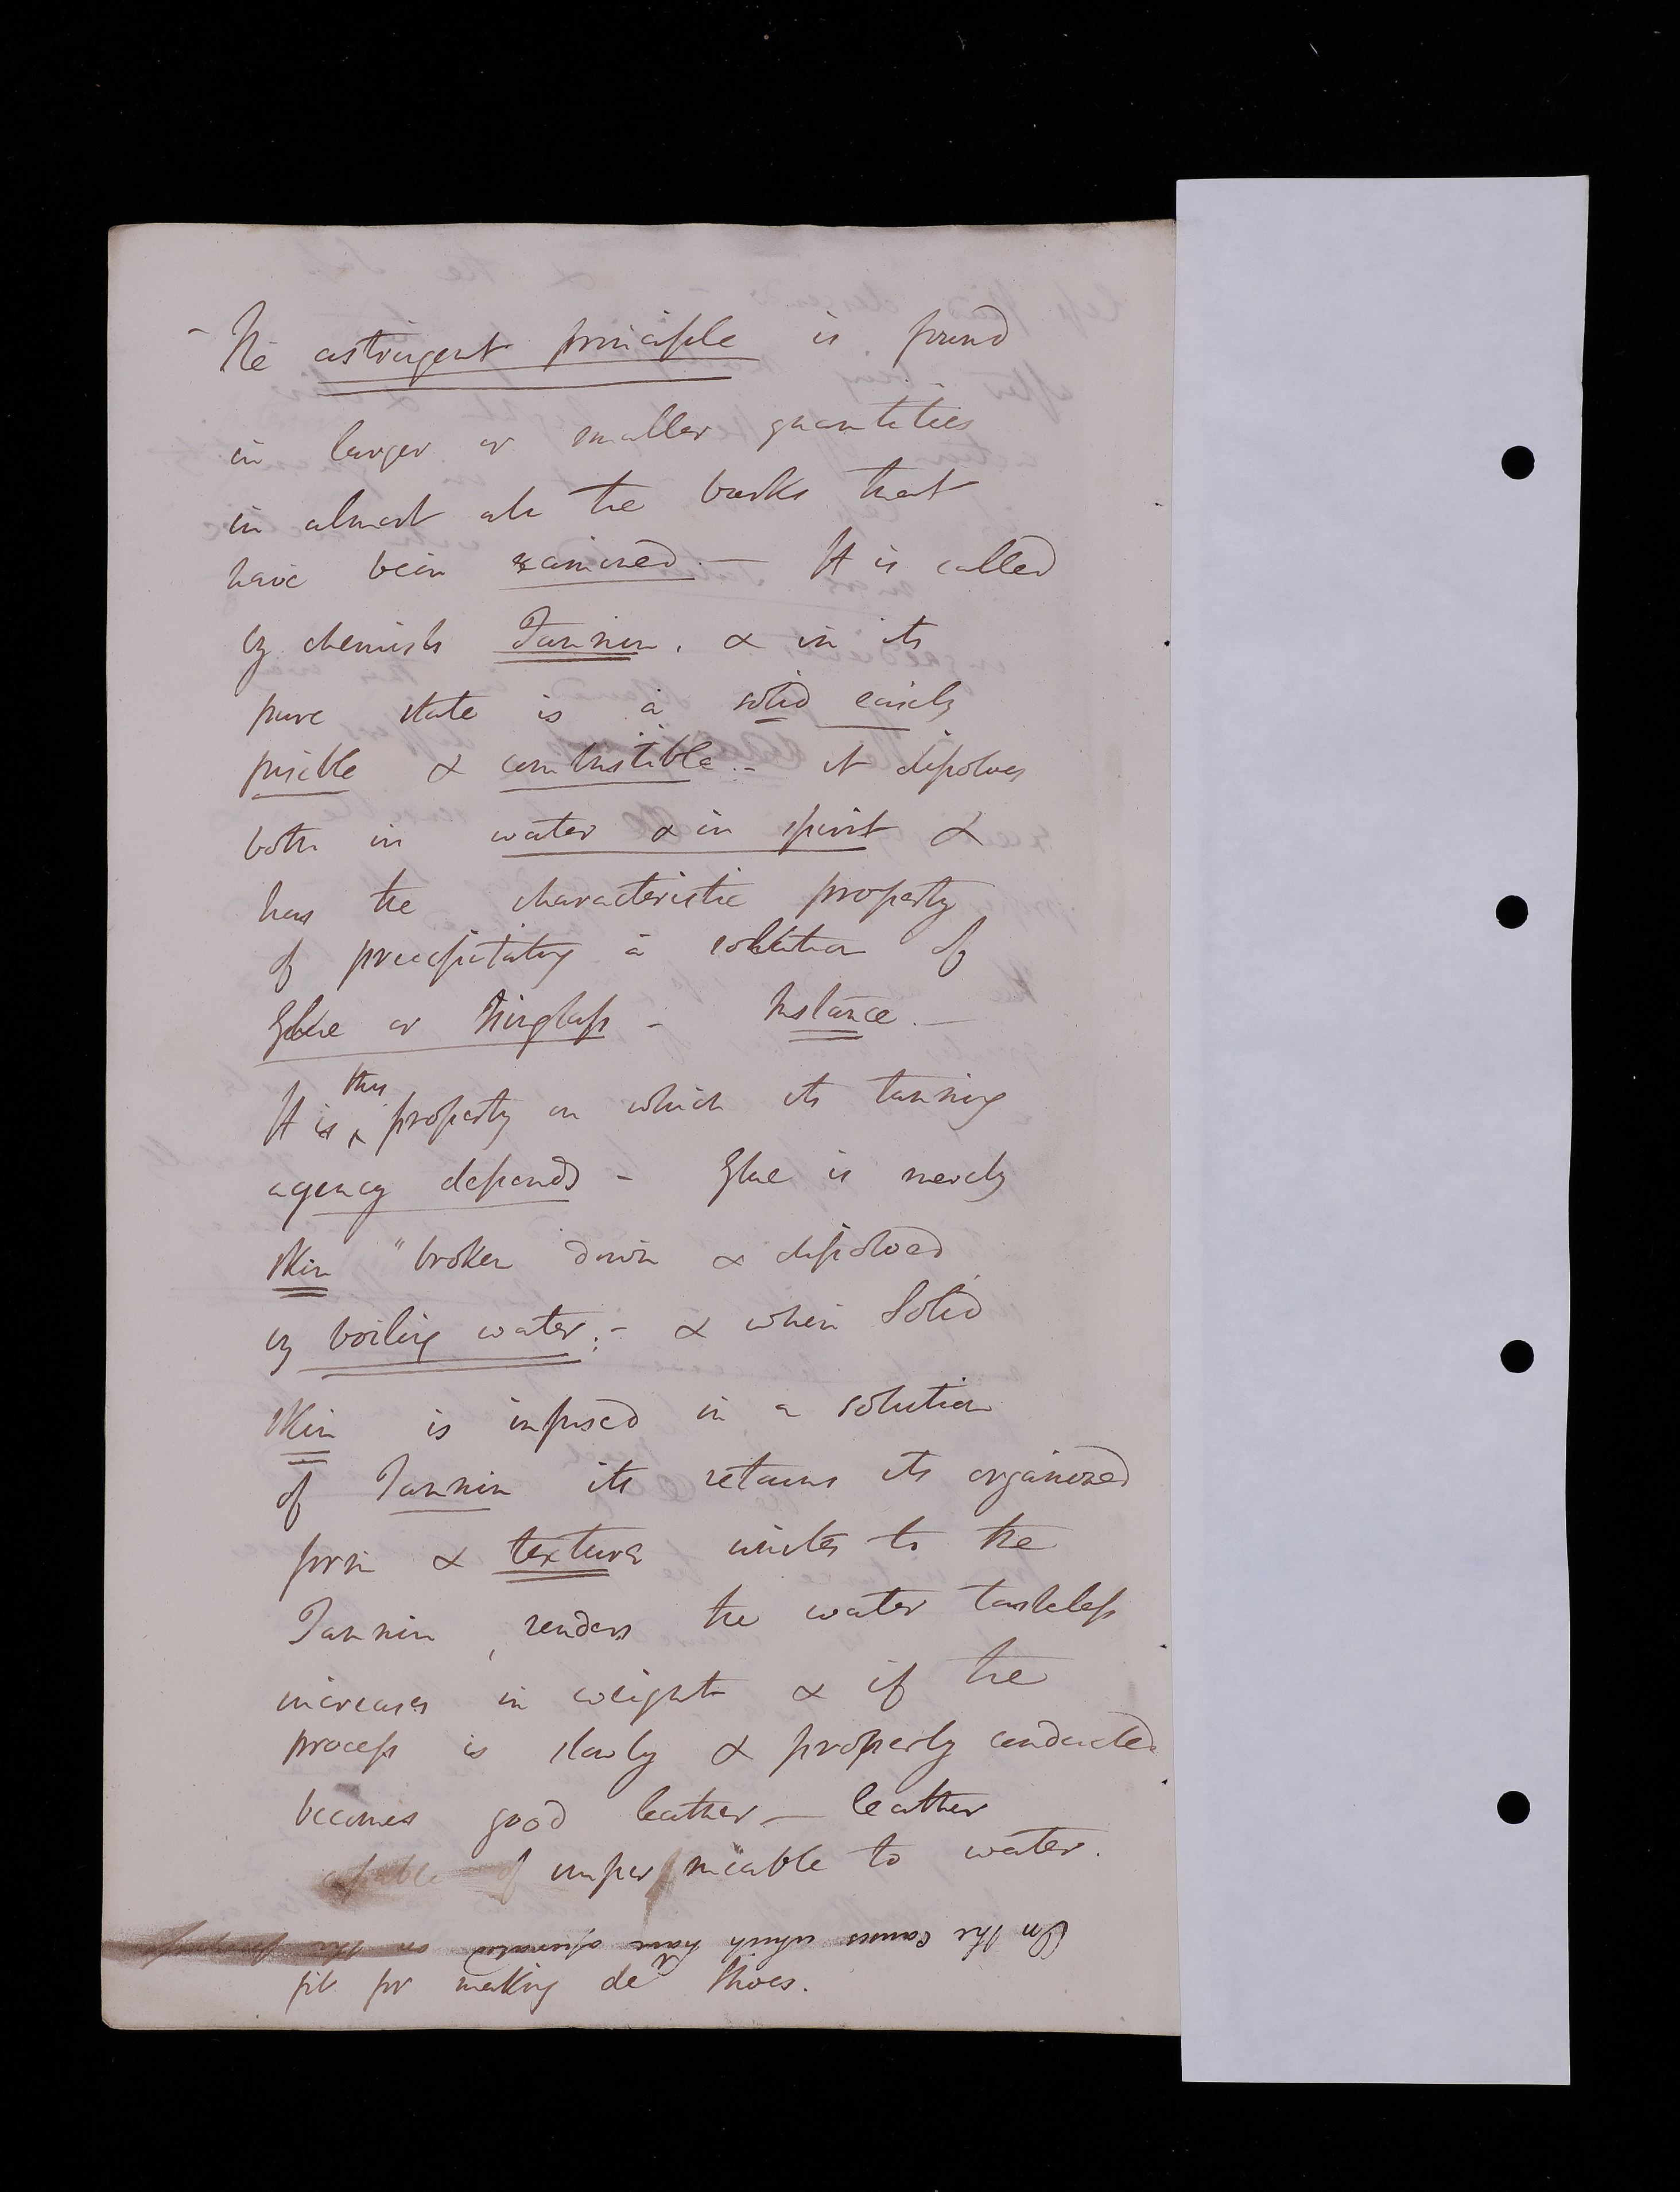 - The astringent principle is found
in larger or smaller quantities
in almost all the barks that
have been examined. — It is called
by chemists Tannin, & in its
pure state is a solid easily
fusible & combustible. - it dissolves
both in water & in spirit &
has the characteristic property
of precipitating a solution of
Glue or Isinglass - Instance. —
It is this property on which its tanning
agency depends - Glue is merely
skin "broken down & dissolved
by boiling water: - & when solid
skin is infused in a solution
of Tannin its retains its organized
form & texture unites to the
Tannin, renders the water tasteless
increases in weight & if the
process is slowly & properly conducted
becomes good leather — leather
of impermeable to water.
On the causes which have operated on the
fit for making de shoes.